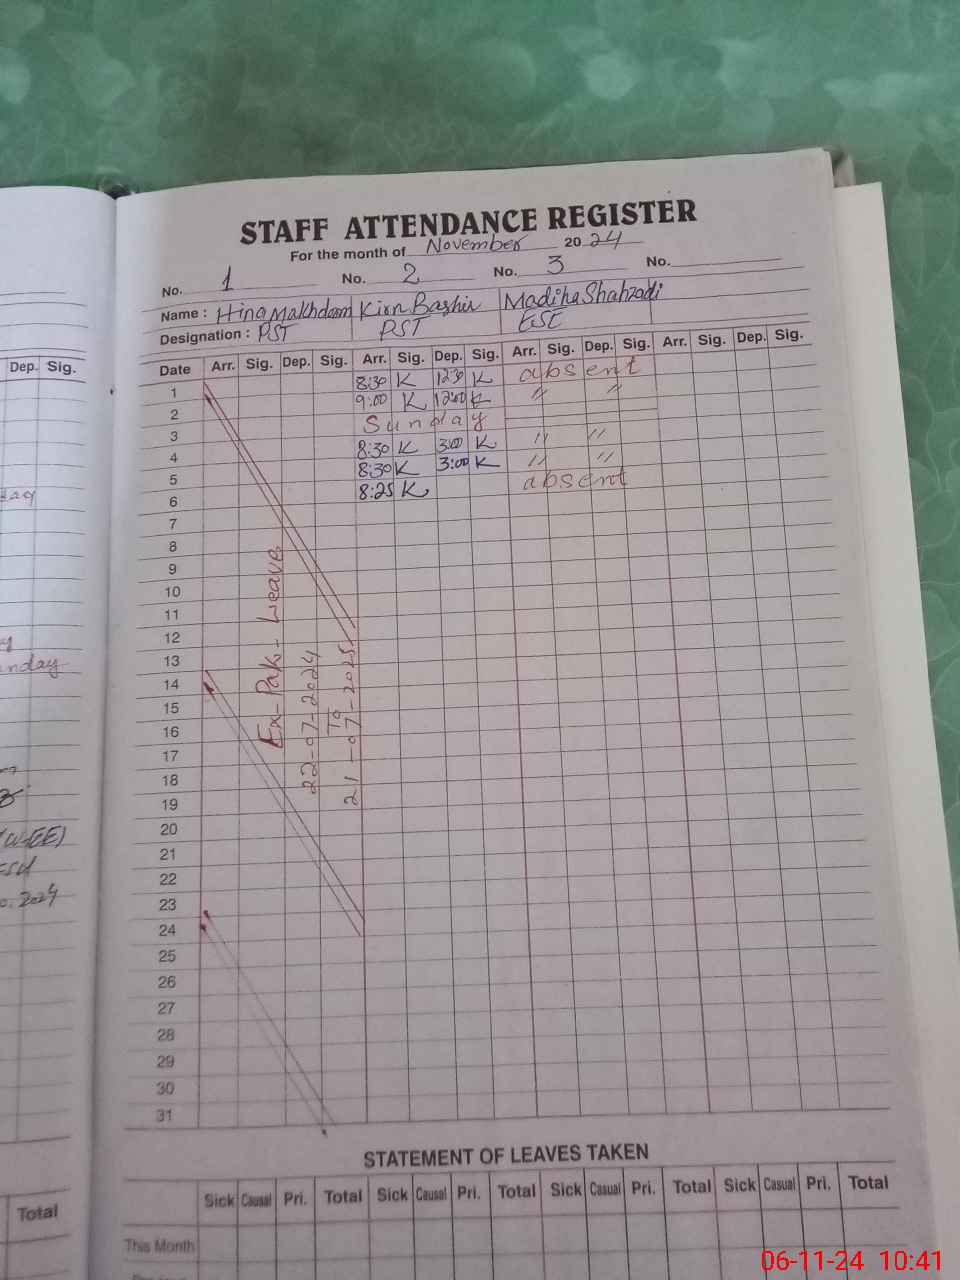 STAFF ATTENDANCE REGISTER
For the month of November 2024
No. 1 No. 2 No. 3 No.
Name : Hina Makhdom Kirn Bashir Madiha Shahzadi
Designation : PST PST ESE
Date Arr. Sig. Dep. Sig. Arr. Sig. Dep. Sig. Arr. Sig. Dep. Sig. Arr. Sig. Dep. Sig.
1 8:30 K 12:30 K absent
2 9:00 K 12:00 K " "
3 Sunday
4 8:30 K 3:00 K " "
5 8:30 K 3:00 K " "
6 8:25 K absent
7
8
9
10
11
12
13
14
15
16
17
18
19
20
21
22
23
24
25
26
27
28
29
30
31
Ex-Pak-Leave
22-07-2024
To
21-07-2025
STATEMENT OF LEAVES TAKEN
Sick Causal Pri. Total Sick Causal Pri. Total Sick Casual Pri. Total Sick Casual Pri. Total
This Month
Dep. Sig.
nday
(W-EE)
2024
Total
06-11-24 10:41